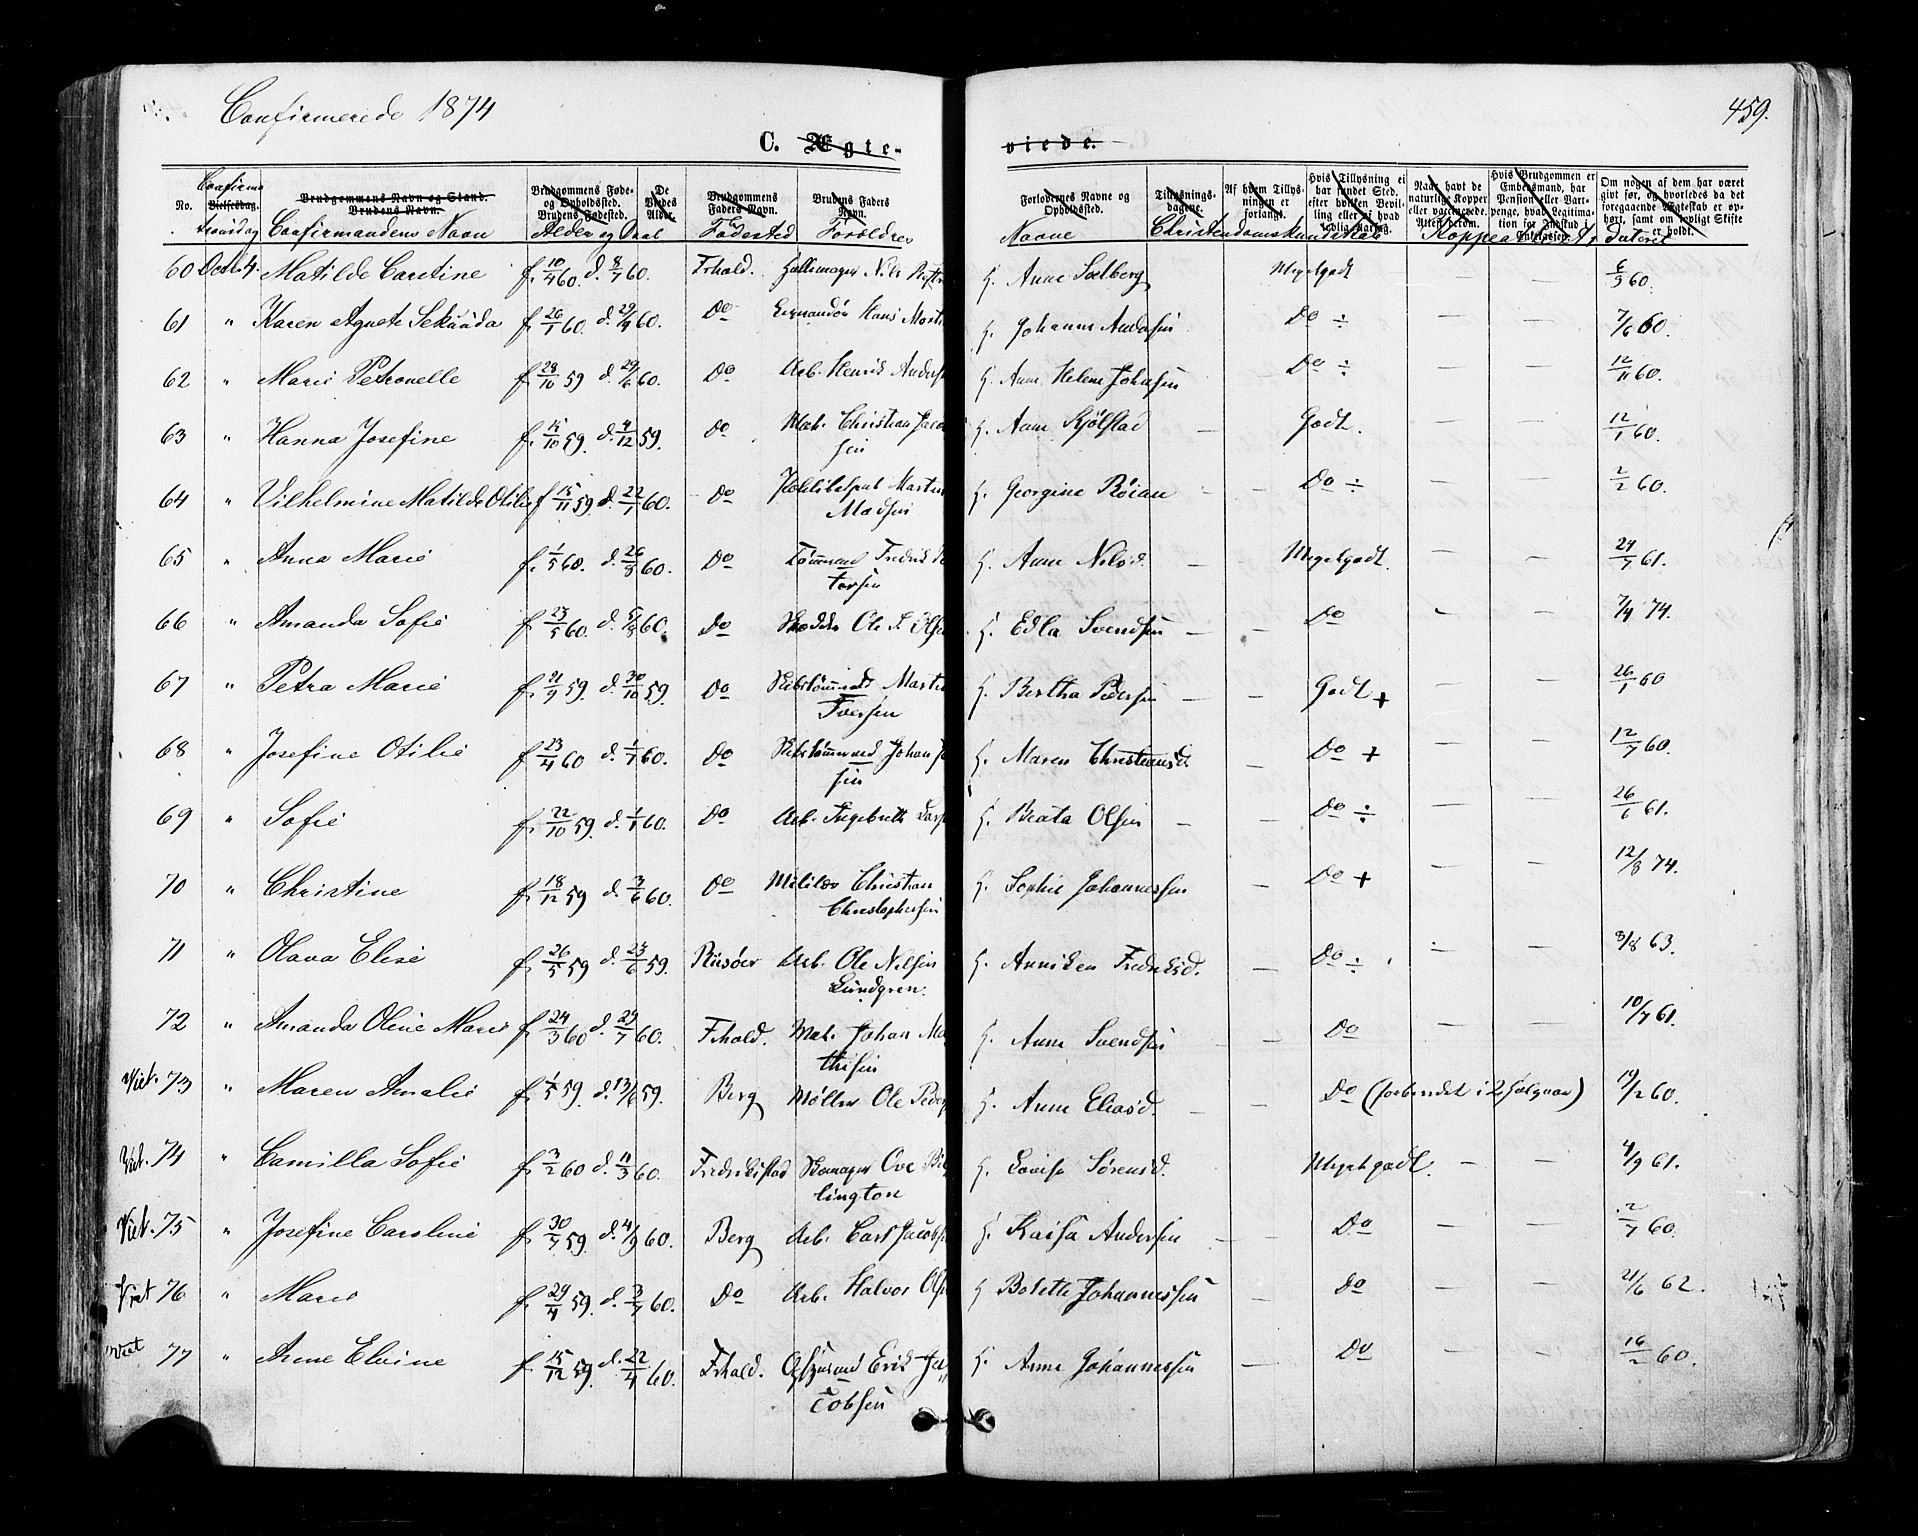 Confirmerede 1874
459.
C. Ægte- viede.
No. Confirma Vielsesdag. tionsdag Brudgommens Navn og Stand. Brudens Navn. Confirmandens Navn Brudgommens Føde- og Opholdssted. Brudens Fødested. Alder og Daab De Viedes Alder. Brudgommens Faders Navn. Fødested Brudens Faders Navn. Forældres Forlovernes Navne og Opholdssted. Navne Tillysnings- dagene. Christendomskundskab Af hvem Tillys- ningen er forlangt. Hvis Tillysning ei har fundet Sted, efter hvilken Bevil- ling eller Naar havt de naturlige Kopper eller vaccinerede. Attest derom. Hvis Brudgommen er Embedsmand, har Pension eller Vart- penge, hvad Legitima- tion for Indskud i Enkekassen. Om nogen af dem har været givt før, og hvorledes da det foregaaende Ægteskab er op- hørt, samt om lovligt Skifte er holdt. Koppeattester dateret
60 Octb. 4. Matilde Caroline f. 10/4 60. d. 8/7 60. Frhald. Nils H. Anne Solberg Megetgodt — — 6/3 60.
61 " Karen Agnete Sekunda f. 26/1 60. d. 29/4 60. Do Hans H. Johanne Andersen Do ÷ — — 7/6 60.
62 " Marie Petronelle f. 28/10 59 d. 29/6 60. Do Arb. Henrik Anders H. Anne Helene Johnsen Do ÷ — — 12/11 60.
63 " Hanna Josefine f. 15/10 59. d. 4/12 59. Do Mat. Christian Jacob H. Anne Kjølstad — Godt. — — 12/1 60.
sen
64 " Vilhelmine Matilde Otilie f 15/11 59. d. 22/1 60. Do Martin H. Georgine Röian — — Do ÷ — — 2/2 60.
Madsen
65 " Anna Marie f. 1/5 60. d. 26/8 60. Do Tömmmd Fredrik Pe H. Anne Nilsd. Megetgodt. — — 24/7 61.
tersen
66 " Amanda Sofie f 23/5 60. d. 5/8 60. Do Ole Olsen H. Edla Svendsen — — Do — — 7/4 74.
67 " Petra Marie f. 21/9 59. d. 30/10 59. Do Skibstömmmd Martin H. Bertha Pedersen — — Godt + — — 26/1 60
Iversen
68 " Josefine Otilie f 23/4 60 d. 1/7 60. Do Skibstömmmd Johan Jo H. Maren Christiansd. — Do + — — 12/7 60.
sen
69 " Sofie f. 22/10 59. d. 1/1 60. Do Arb. Ingebreth Lars H. Beata Olsen — — Do ÷ — — 26/6 61.
70 " Christine f. 18/12 59 d. 3/6 60. Do Christian H. Sophie Johannessen — Do + — — 12/8 74.
Christophersen
71 " Olava Elise f. 26/5 59 d. 24/6 59. Riisöer Arb. Ole Nilsen H. Anniken Fredriksd. — Do ÷ — — 3/8 63.
Lundgren.
72 " Amanda Oline Marie f 24/3 60 d. 29/7 60. Frhald. Mat. Johan Ma H. Anne Svendsen Do — — 10/7 61.
thisen
Viet. 73 " Maren Amalie f. 1/5 59. d. 13/6 59. Berg Møller Ole Peder H. Anne Eliasd. — — Do 19/2 60.
Viet. 74 " Camilla Sofie f 3/2 60 d. 11/3 60. Fredrikstad Ove Bil H. Lovise Sörensd. Megetgodt. — — 4/9 61.
lington
Viet. 75 " Josefine Caroline f 30/7 59. d. 4/9 60. Berg Arb. Carl Jacobs H. Kaisa Andersen — — Do — — 2/7 60.
Viet 76 " Marie f. 29/4 59. d. 3/7 60. Do Arb. Halvor Ols H Bolette Johannessen Do — — 21/6 62.
Viet 77 " Anne Elvine f. 15/12 59. d. 22/4 60. Frhald. Erik Ja H. Anne Johannessen — Do — — 16/2 60.
cobsen